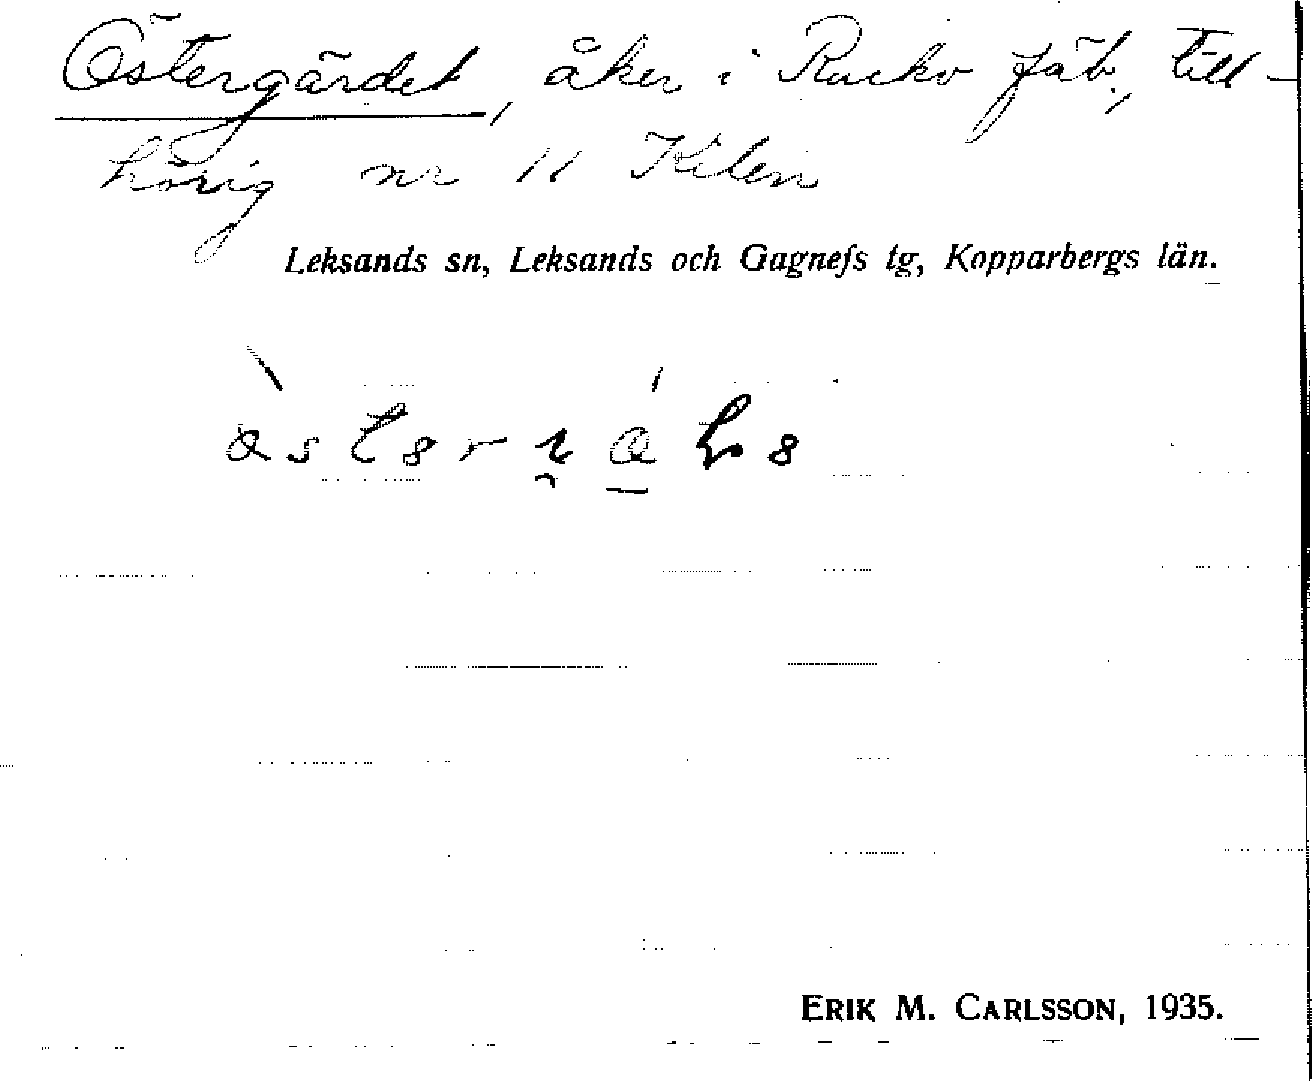 Östergärdet, åker i Racko fäb., till-
hörig nr 11 Kilen
Leksands sn, Leksands och Gagnefs tg, Kopparbergs län.
ERIK M. CARLSSON, 1935.